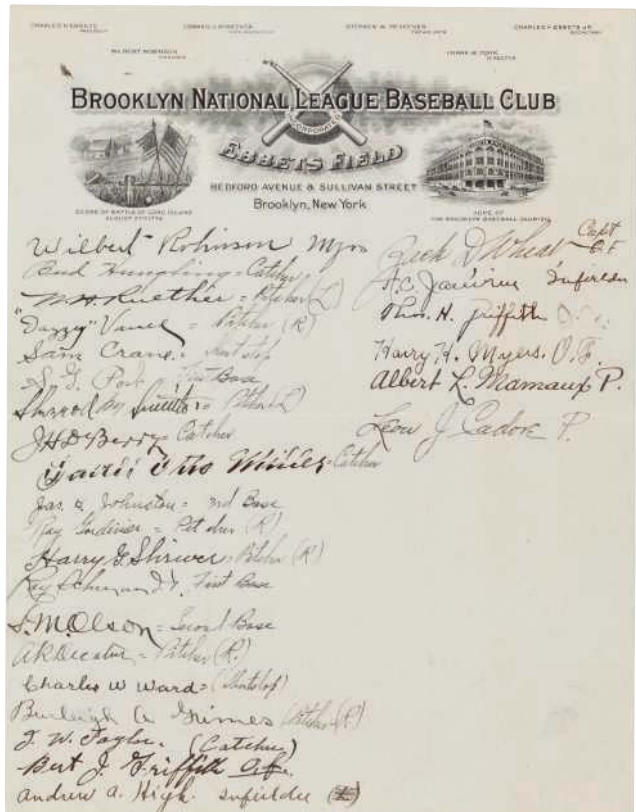 CHARLES H EBBETS
PRESIDENT
EDWARD J McKEEVER
VICE PRESIDENT
STEPHEN W McKEEVER
TREASURER
CHARLES H EBBETS JR
SECRETARY
WILBERT ROBINSON
MANAGER
FRANK B YORK
DIRECTOR
BROOKLYN NATIONAL LEAGUE BASEBALL CLUB
INCORPORATED
EBBETS FIELD
BEDFORD AVENUE & SULLIVAN STREET
Brooklyn, New York
SCENE OF BATTLE OF LONG ISLAND
HOME OF
THE BROOKLYN BASEBALL CLUB
Wilbert Robinson Mgr
Bud Hungling = Catcher
W.H. Ruether = Pitcher (L)
"Dazzy" Vance = Pitcher (R)
Sam Crane = Shortstop
S. G. Post First Base
Sherrod M Smith = Pitcher (L)
J H DeBerry = Catcher
Otto Miller - Catcher
Jas. H. Johnston = 3rd Base
Ray Gordinier = Pitcher (R)
Harry G. Shriver = Pitcher (R)
Ray Schmandt, First Base
I. M. Olson = Second Base
A R Decatur = Pitcher (R.)
Charles W Ward = (Shortstop)
Burleigh A Grimes Pitcher (R)
J. W. Taylor. (Catcher)
Bert J. Griffith O.F.
Andrew A. High. infielder
Zach D Wheat Capt O.F.
H.C. Janvrin Infielder
Thos. H. Griffith O.F.
Harry H. Myers. O.F.
Albert L. Mamaux P.
Leon J Cadore P.